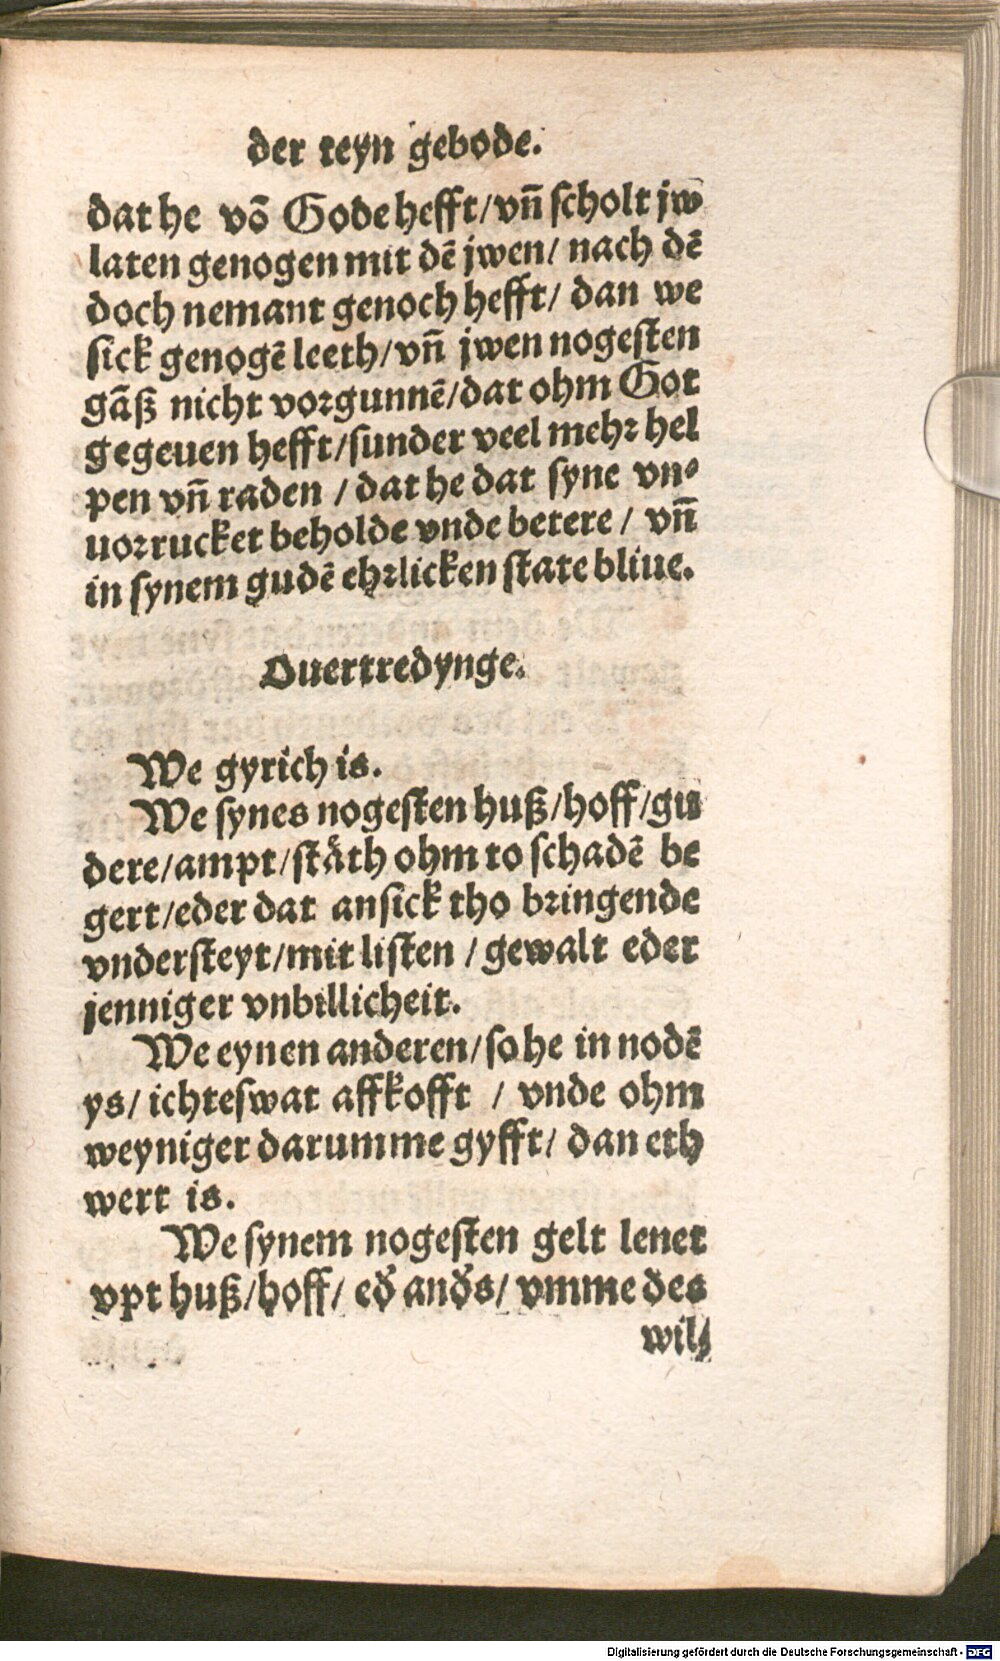 der teyn gebode.
dat he võ Gode hefft/vñ scholt jw
laten genogen mit dẽ jwen/ nach dẽ
doch nemant genoch hefft/ dan we
sick genogẽ leeth/vñ jwen nogesten
gãß nicht vorgunnẽ/dat ohm Got
gegeuen hefft/sunder veel mehr hel
pen vñ raden / dat he dat syne vn⸗
uorrucket beholde vnde betere / vñ
in synem gudẽ ehrlicken state bliue.
Ouertredynge.
We gyrich is.
We synes nogesten huß/hoff/gu
dere/ampt/stäth ohm to schadẽ be
gert/eder dat ansick tho bringende
vndersteyt/mit listen / gewalt eder
jenniger vnbillicheit.
We eynen anderen/so he in nodẽ
ys/ ichteswat affkofft / vnde ohm
weyniger darumme gyfft/ dan eth
wert is.
We synem nogesten gelt lenet
vpt huß/hoff/ eď anďs/ vmme des
wil⸗
Digitalisierung gefördert durch die Deutsche Forschungsgemeinschaft - DFG